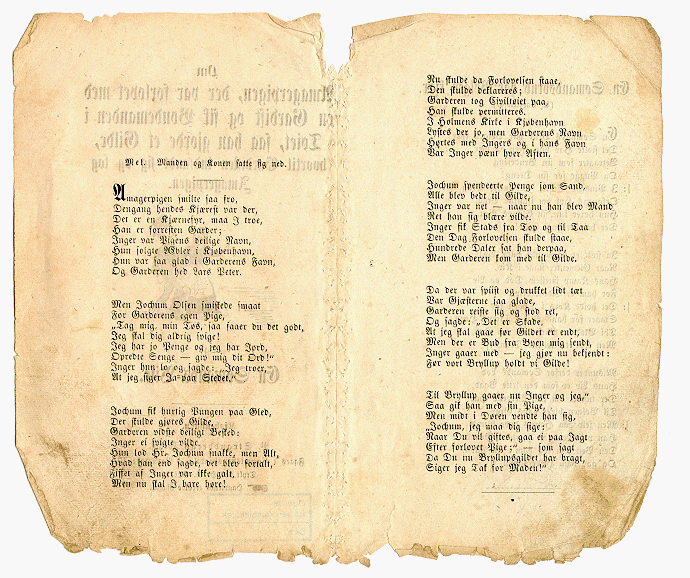 Mel. Manden og Konen satte sig ned.
Amagerpigen smilte saa fro,
Dengang hendes Kjærest var der,
Det er en Kjærnefyr, maa I troe,
Han er forresten Garder;
Inger var Pigens deilige Navn,
Hun solgte Æbler i Kjøbenhavn,
Hun var saa glad i Garderens Favn,
Og Garderen hed Lars Peter.
Men Jochum Olsen smiskede smaat
For Garderens egen Pige,
„Tag mig, min Tøs, saa faaer du det godt,
Jeg skal dig aldrig svige!
Jeg har jo Penge og jeg har Jord,
Opredte Senge — giv mig dit Ord!"
Inger hun lo og sagde: „Jeg troer,
At jeg siger Ja paa Stedet."
Jochum fik hurtig Pungen paa Gled,
Der skulde gjøres Gilde,
Garderen vidste deiligt Besked:
Inger ei svigte vilde.
Hun lod Hr. Jochum snakke, men Alt,
Hvad han end sagde, det blev fortalt,
Fiffet af Inger var ikke galt,
Men nu skal I bare høre!
Nu skulde da Forlovelsen staae,
Den skulde deklareres;
Garderen tog Civiltøiet paa,
Han skulde permitteres.
I Holmens Kirke i Kjøbenhavn
Lystes der jo, men Garderens Navn
Hørtes med Ingers og i hans Favn
Var Inger pænt hver Aften.
Jochum spenderte Penge som Sand,
Alle blev bedt til Gilde,
Inger var net — naar nu han blev Mand
Ret han sig blære vilde.
Inger fik Stads fra Top og til Taa
Den Dag Forlovelsen skulde staae,
Hundrede Daler sat han derpaa,
Men Garderen kom med til Gilde.
Da der var spiist og drukket lidt tæt
Var Gjæsterne saa glade,
Garderen reiste sig og stod ret,
Og sagde: „Det er Skade,
At jeg skal gaae før Gildet er endt,
Men der er Bud fra Byen mig sendt,
Inger gaaer med — jeg gjør nu bekjendt:
For vort Bryllup holdt vi Gilde!
Til Bryllup gaaer nu Inger og jeg,"
Saa gik han med sin Pige,
Men midt i Døren vendte han sig,
„Jochum, jeg maa dig sige:
Naar Du vil giftes, gaa ei paa Jagt
Efter forlovet Pige;" — som sagt
Da Du nu Bryllupsgildet har bragt,
Siger jeg Tak for Maden!"